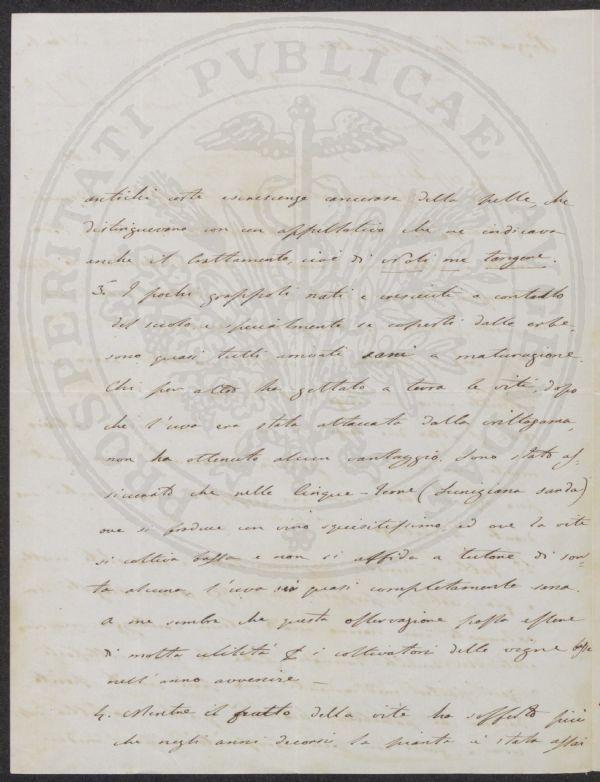 PROSPERITATI PVBLICAE AVGENDAE
antichi certe escrescenze cancerose della pelle, che
distinguevano con un appellativo che ne indicava
anche il trattamento, cioè di Noli me tangere.
3. I pochi grappoli nati e cresciuti a contatto
del suolo e specialmente se coperti dalle erbe
sono quasi tutti arrivati sani a maturazione.
Chi per altro ha gettato a terra le viti, dopo
che l'uva era stata attaccata dalla crittogama,
non ha ottenuto alcun vantaggio. Sono stato as-
sicurato che nelle Cinque-Terre (Lunigiana sarda)
ove si produce un vino squisitissimo, ed ove la vite
si coltiva bassa e non si affida a tutore di sor-
ta alcuna, l'uva quasi completamente sana.
A me sembra che questa osservazione possa essere
di molta utilità i coltivatori delle vigne
nell'anno avvenire —
4. Mentre il frutto della vite ha sofferto più
che negli anni decorsi, la pianta è stata assai